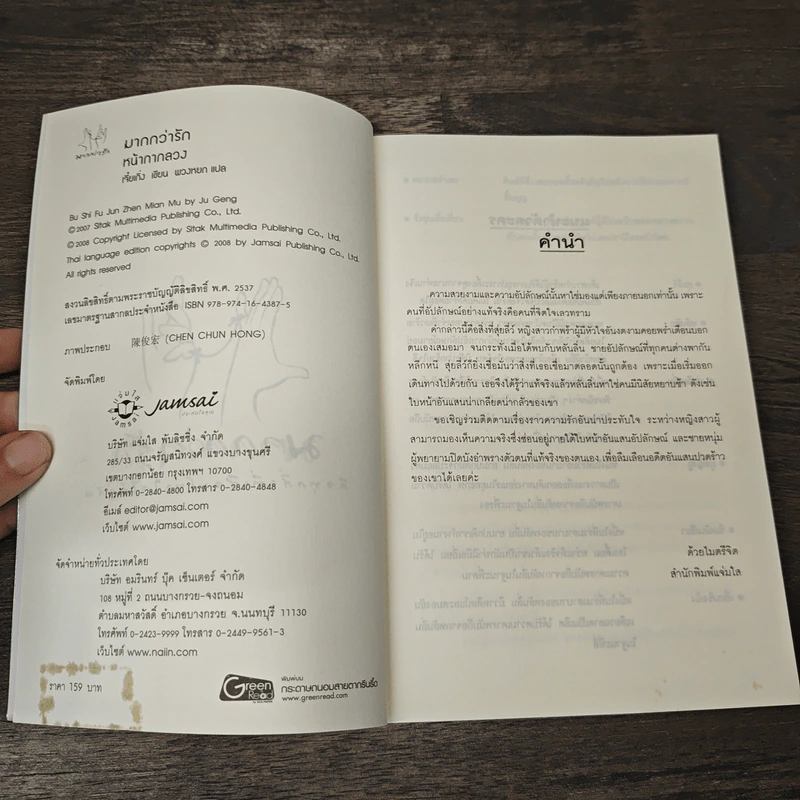 มากกว่ารัก
มากกว่ารัก
หน้ากากลวง
เจี๋ยเกิ่ง เขียน พวงหยก แปล
Bu Shi Fu Jun Zhen Mian Mu by Ju Geng
©2007 Sitak Multimedia Publishing Co., Ltd.
©2008 Copyright Licensed by Sitak Multimedia Publishing Co., Ltd.
Thai language edition copyrights © 2008 by Jamsai Publishing Co., Ltd.
All rights reserved
สงวนลิขสิทธิ์ตามพระราชบัญญัติลิขสิทธิ์ พ.ศ. 2537
เลขมาตรฐานสากลประจำหนังสือ ISBN 978-974-16-4387-5
ภาพประกอบ 陳俊宏 (CHEN CHUN HONG)
จัดพิมพ์โดย
แจ่มใส
Jamsai
Jamsai
บริษัท แจ่มใส พับลิชชิ่ง จำกัด
285/33 ถนนจรัญสนิทวงศ์ แขวงบางขุนศรี
เขตบางกอกน้อย กรุงเทพฯ 10700
โทรศัพท์ 0-2840-4800 โทรสาร 0-2840-4848
อีเมล์ editor@jamsai.com
เว็บไซต์ www.jamsai.com
จัดจำหน่ายทั่วประเทศโดย
บริษัท อมรินทร์ บุ๊ค เซ็นเตอร์ จำกัด
108 หมู่ที่ 2 ถนนบางกรวย-จงถนอม
ตำบลมหาสวัสดิ์ อำเภอบางกรวย จ.นนทบุรี 11130
โทรศัพท์ 0-2423-9999 โทรสาร 0-2449-9561-3
เว็บไซต์ www.naiin.com
ราคา 159 บาท
Green
Read
พิมพ์บน
กระดาษถนอมสายตากรีนรี้ด
www.greenread.com
คำนำ
ความสวยงามและความอัปลักษณ์นั้นหาใช่มองแต่เพียงภายนอกเท่านั้น เพราะ
คนที่อัปลักษณ์อย่างแท้จริงคือคนที่จิตใจเลวทราม
คำกล่าวนี้คือสิ่งที่สุ่ยลิ่ว หญิงสาวกำพร้าผู้มีหัวใจอันงดงามคอยพร่ำเตือนบอก
ตนเองเสมอมา จนกระทั่งเมื่อได้พบกับหลันลิ่น ชายอัปลักษณ์ที่ทุกคนต่างพากัน
หลีกหนี สุ่ยลิ่วก็ยิ่งเชื่อมั่นว่าสิ่งที่เธอเชื่อมาตลอดนั้นถูกต้อง เพราะเมื่อเริ่มออก
เดินทางไปด้วยกัน เธอจึงได้รู้ว่าแท้จริงแล้วหลันลิ่นหาใช่คนมีนิสัยหยาบช้า ดังเช่น
ใบหน้าอันแสนน่าเกลียดน่ากลัวของเขา
ขอเชิญร่วมติดตามเรื่องราวความรักอันน่าประทับใจ ระหว่างหญิงสาวผู้
สามารถมองเห็นความจริงซึ่งซ่อนอยู่ภายใต้ใบหน้าอันแสนอัปลักษณ์ และชายหนุ่ม
ผู้พยายามปิดบังอำพรางตัวตนที่แท้จริงของตนเอง เพื่อลืมเลือนอดีตอันแสนปวดร้าว
ของเขาได้เลยค่ะ
ด้วยไมตรีจิต
สำนักพิมพ์แจ่มใส